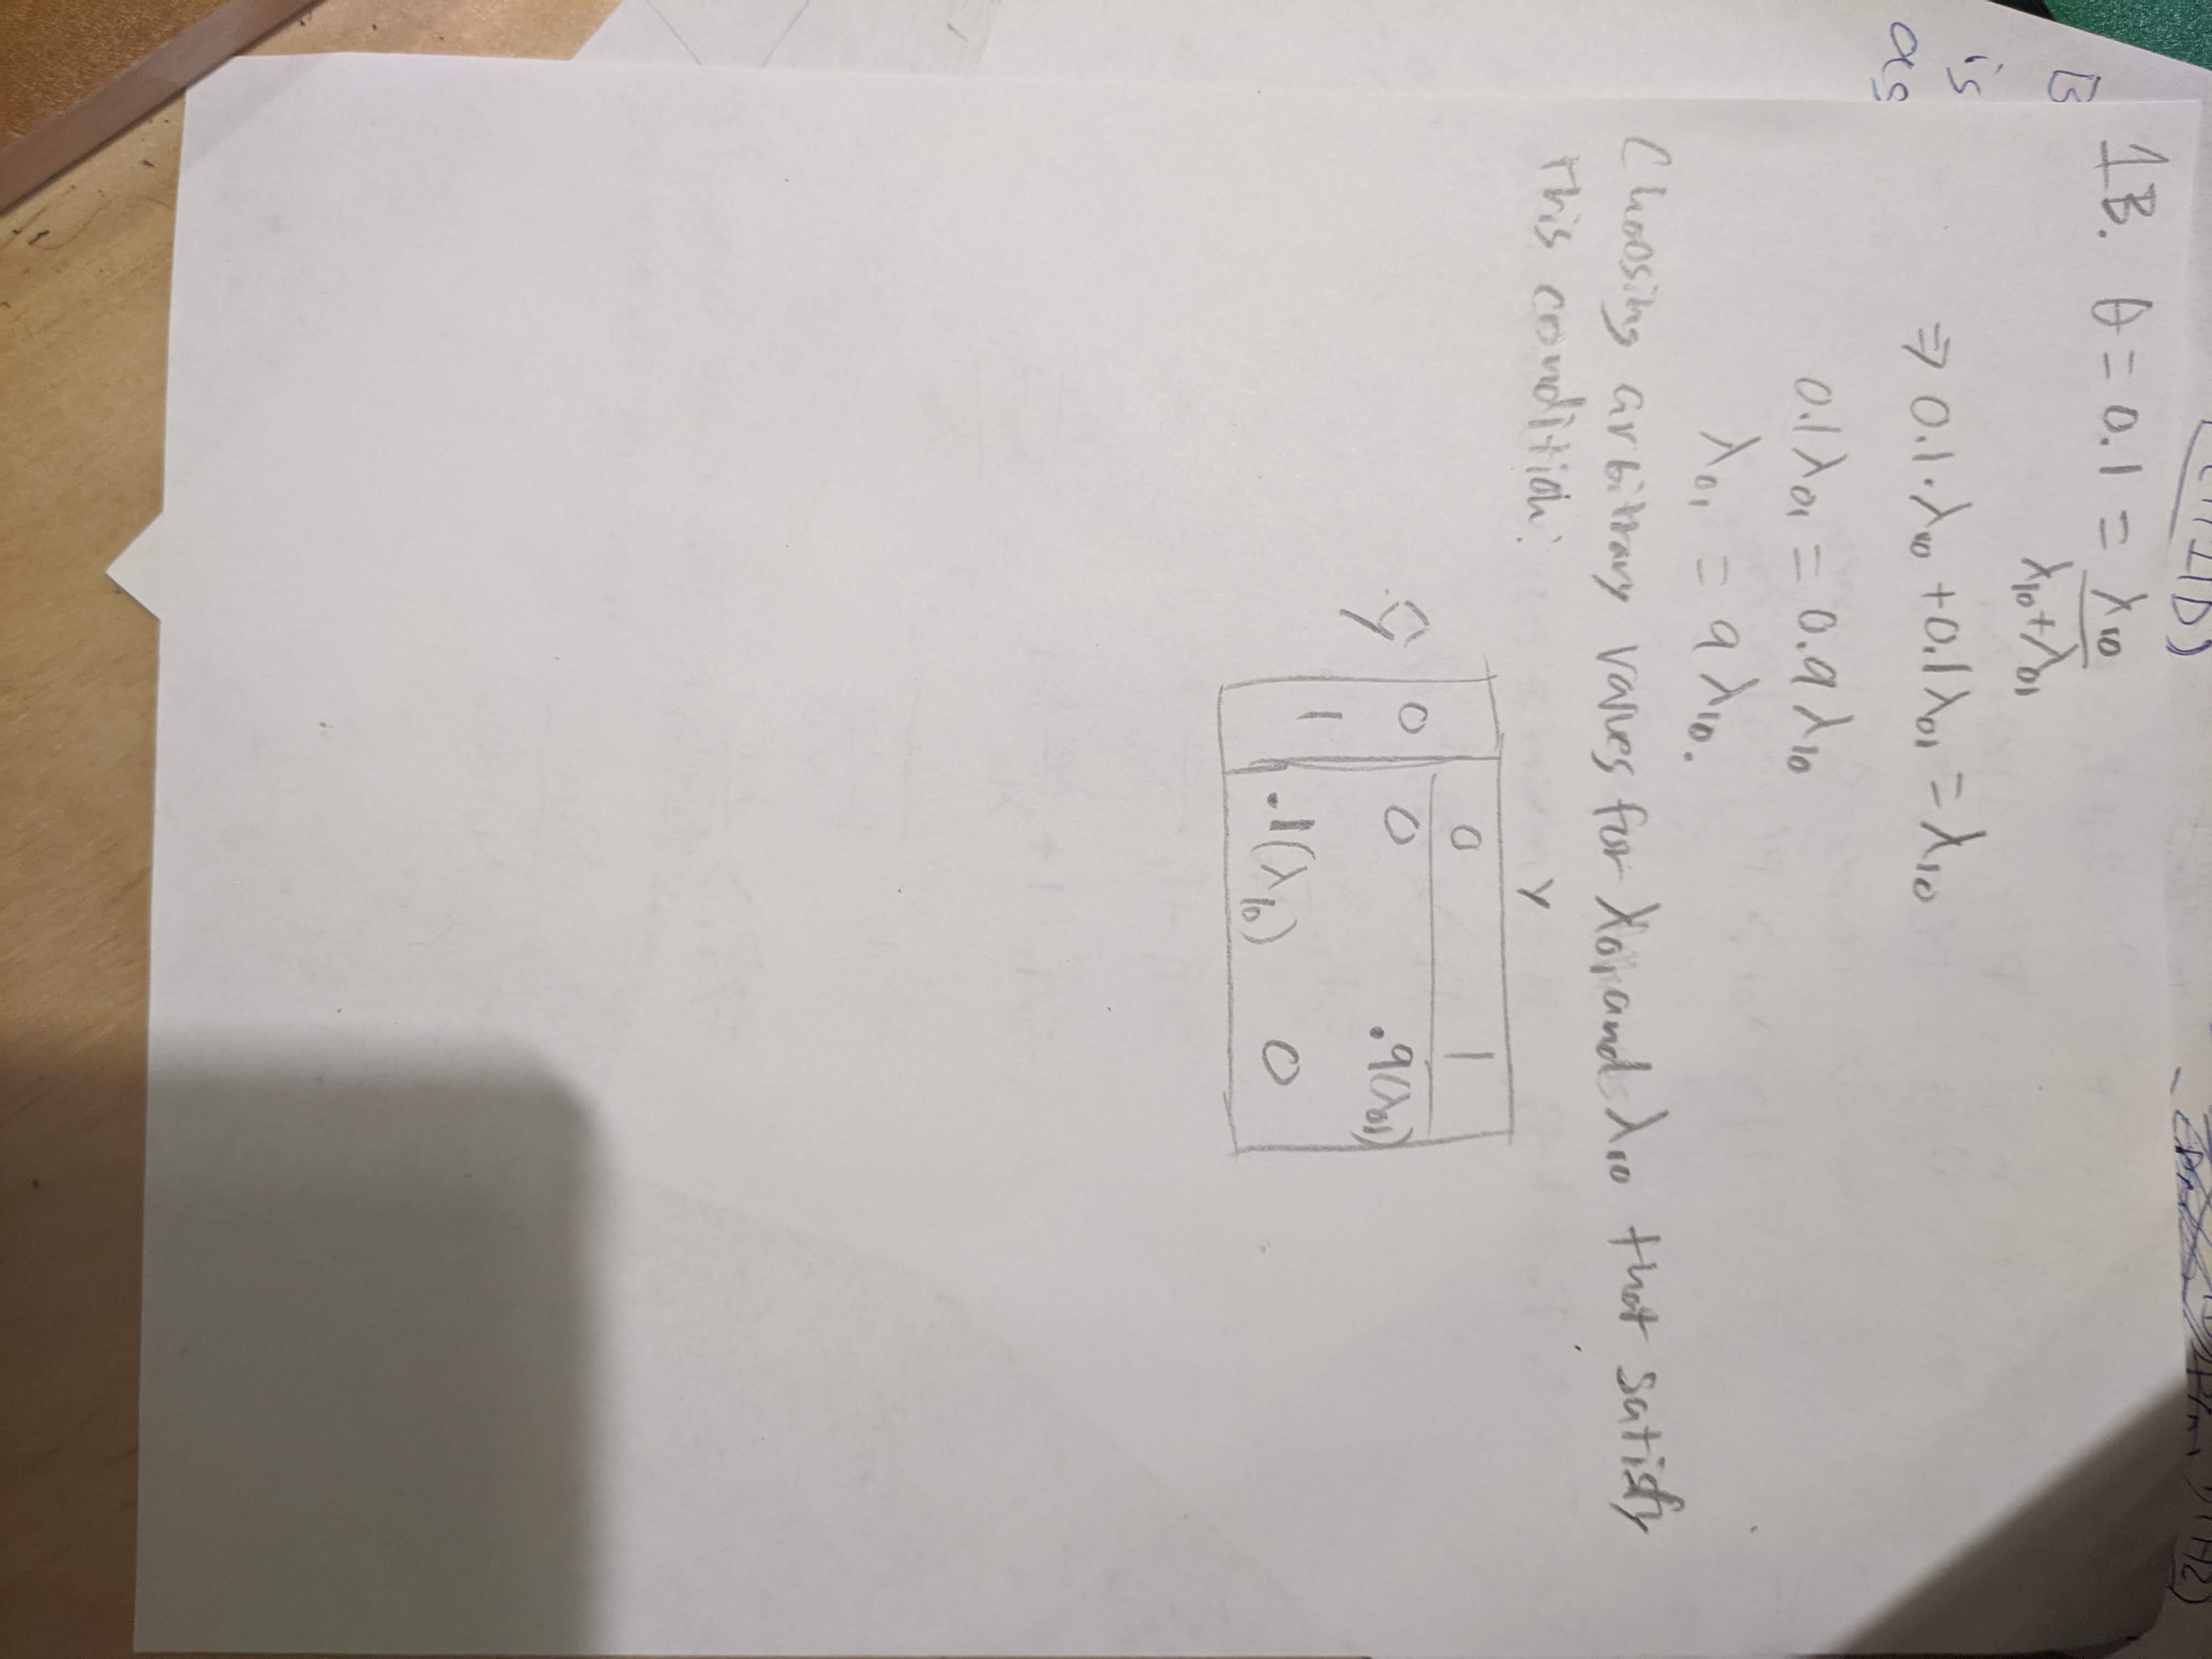 1B. θ = 0.1 = λ10 / λ10+λ01
⇒ 0.1·λ10 + 0.1λ01 = λ10
0.1λ01 = 0.9λ10
λ01 = 9λ10.
Choosing arbitrary values for λ01 and λ10 that satisfy
this condition:
y
0 1
ŷ 0 0 .9(λ01)
1 .1(λ10) 0
is